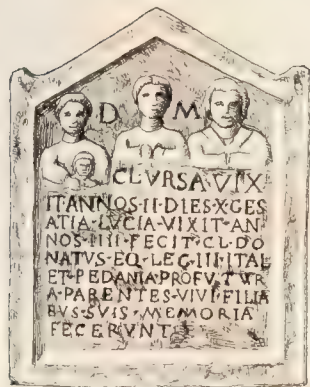 D M
CL VRSA·VIX
IT·ANNOS·II·DIES·X·GES
ATIA·LVCIA·VIXIT·AN
NOS·IIII·FECIT·CL·DO
NATVS·EQ·LEG·III·ITAL
ET·PEDANIA·PROFVTVR
A·PARENTES·VIVI·FILIA
BVS·SVIS·MEMORIA
FECERVNT